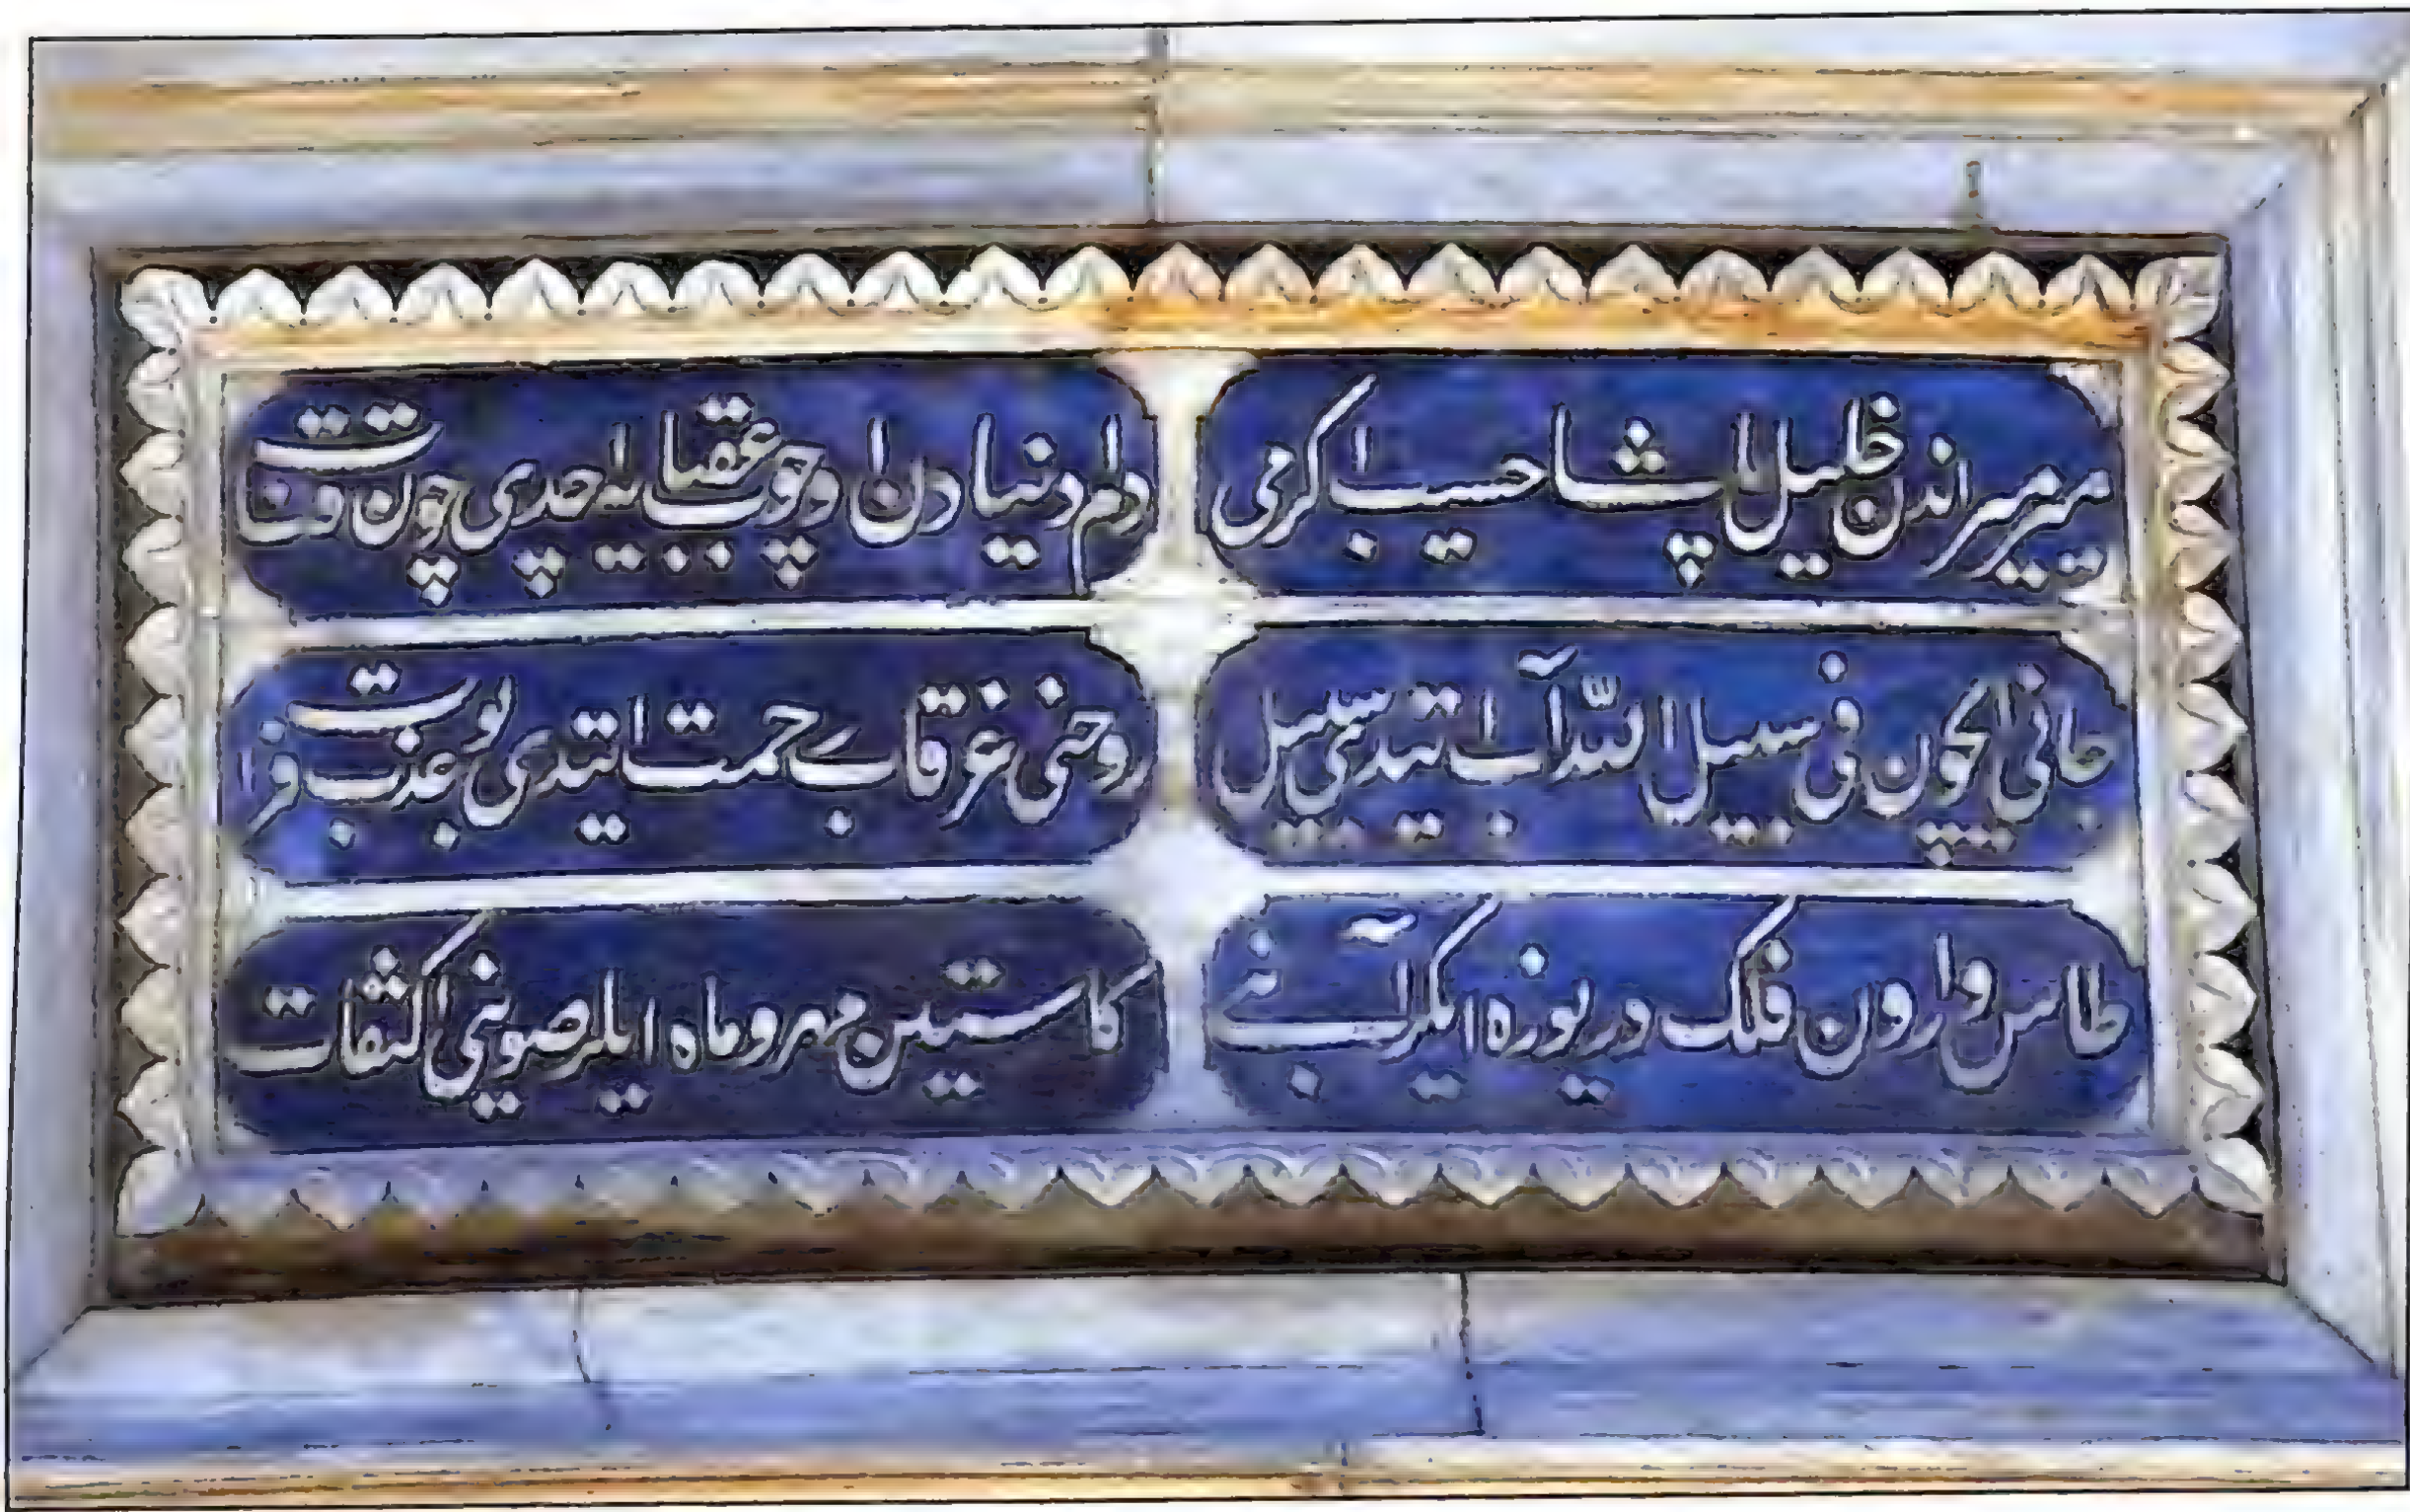 میرمیراندن خلیل پاشا حسیب اکرمی
دام دنیادن اوچوب عقبایه اچدی چون قنات
جانی ایچون فی سبیل الله آب ایتدی سبیل
روحنی غرقاب رحمت ایتدی بو عذب فرات
طاس وارون فلک دریوزه آبنی
مهر و ماه ایلر صوینی